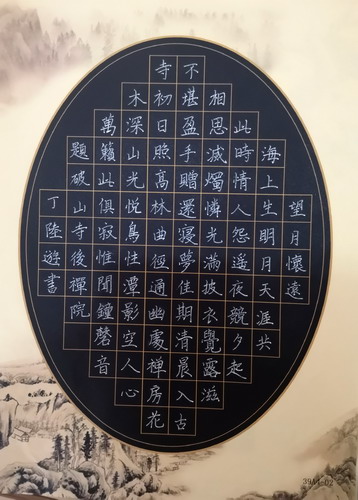 望月懷遠
海上生明月天涯共
此時情人怨遥夜競夕起
相思滅燭憐光滿披衣覺露滋
不堪盈手贈還寢夢佳期清晨入古
寺初日照高林曲徑通幽處禪房花
木深山光悅鳥性潭影空人心
萬籟此俱寂惟聞鐘磬音
題破山寺後禪院
丁陸遊書